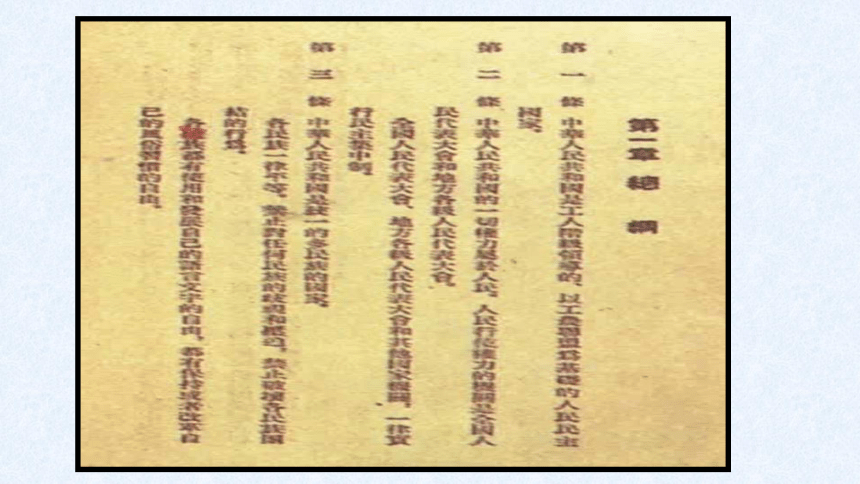 第一章 總綱
第一條 中華人民共和國是工人階級領導的、以工農聯盟爲基礎的人民民主
國家。
第二條 中華人民共和國的一切權力屬於人民。人民行使權力的機關是全國人
民代表大會和地方各級人民代表大會。
全國人民代表大會、地方各級人民代表大會和其他國家機關,一律實
行民主集中制。
第三條 中華人民共和國是統一的多民族的國家。
各民族一律平等。禁止對任何民族的歧視和壓迫,禁止破壞各民族團
結的行爲。
各民族都有使用和發展自己的語言文字的自由,都有保持或者改革自
己的風俗習慣的自由。